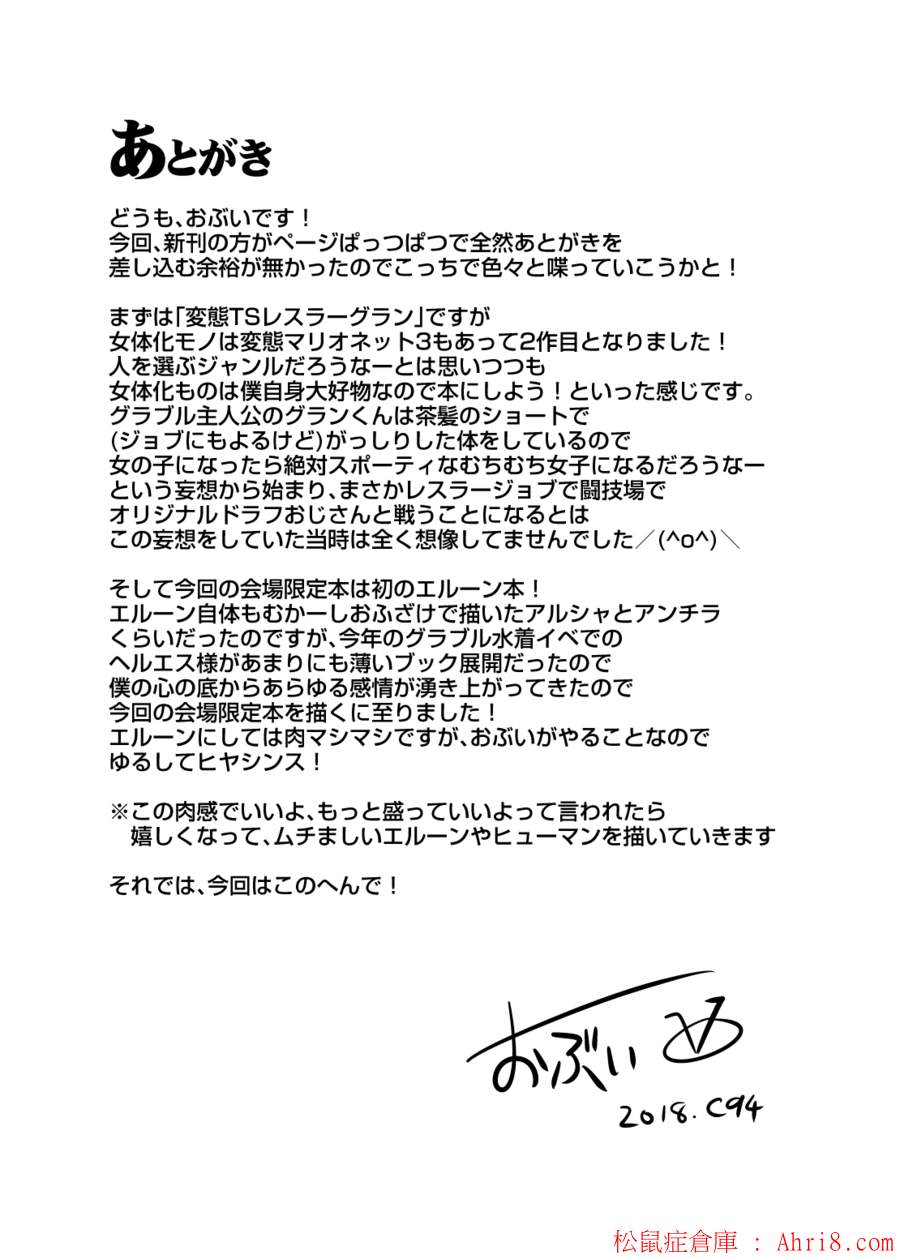 あとがき
どうも、おぶいです！
今回、新刊の方がページぱっつぱつで全然あとがきを
差し込む余裕が無かったのでこっちで色々と喋っていこうかと！
まずは「変態TSレスラーグラン」ですが
女体化モノは変態マリオネット3もあって2作目となりました！
人を選ぶジャンルだろうなーとは思いつつも
女体化ものは僕自身大好物なので本にしよう！といった感じです。
グラブル主人公のグランくんは茶髪のショートで
(ジョブにもよるけど)がっしりした体をしているので
女の子になったら絶対スポーティなむちむち女子になるだろうなー
という妄想から始まり、まさかレスラージョブで闘技場で
オリジナルドラフおじさんと戦うことになるとは
この妄想をしていた当時は全く想像してませんでした／(^o^)＼
そして今回の会場限定本は初のエルーン本！
エルーン自体もむかーしおふざけで描いたアルシャとアンチラ
くらいだったのですが、今年のグラブル水着イベでの
ヘルエス様があまりにも薄いブック展開だったので
僕の心の底からあらゆる感情が湧き上がってきたので
今回の会場限定本を描くに至りました！
エルーンにしては肉マシマシですが、おぶいがやることなので
ゆるしてヒヤシンス！
※この肉感でいいよ、もっと盛っていいよって言われたら
嬉しくなって、ムチましいエルーンやヒューマンを描いていきます
それでは、今回はこのへんで！
おぶい
2018.C94
松鼠症倉庫 : Ahri8.com